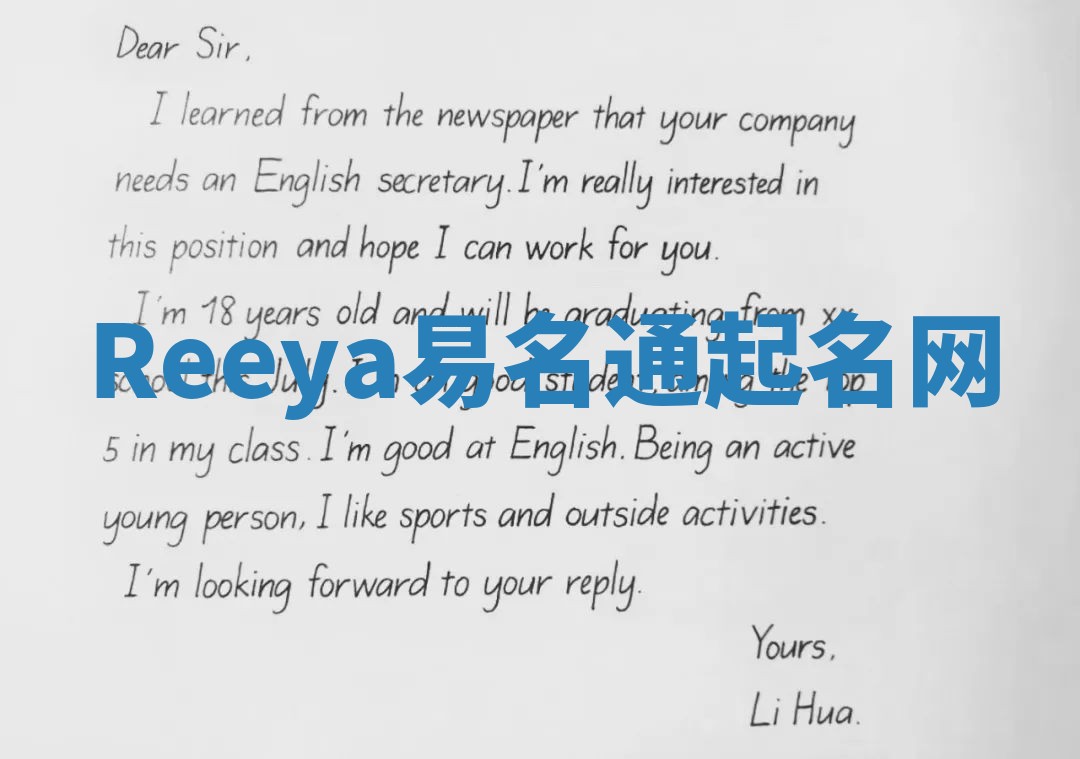 Dear Sir,
I learned from the newspaper that your company
needs an English secretary. I'm really interested in
this position and hope I can work for you.
I'm 18 years old and will be graduating from xx
Reeya易名通起名网
school this July. I'm a good student, among the top
5 in my class. I'm good at English. Being an active
young person, I like sports and outside activities.
I'm looking forward to your reply.
Yours,
Li Hua.